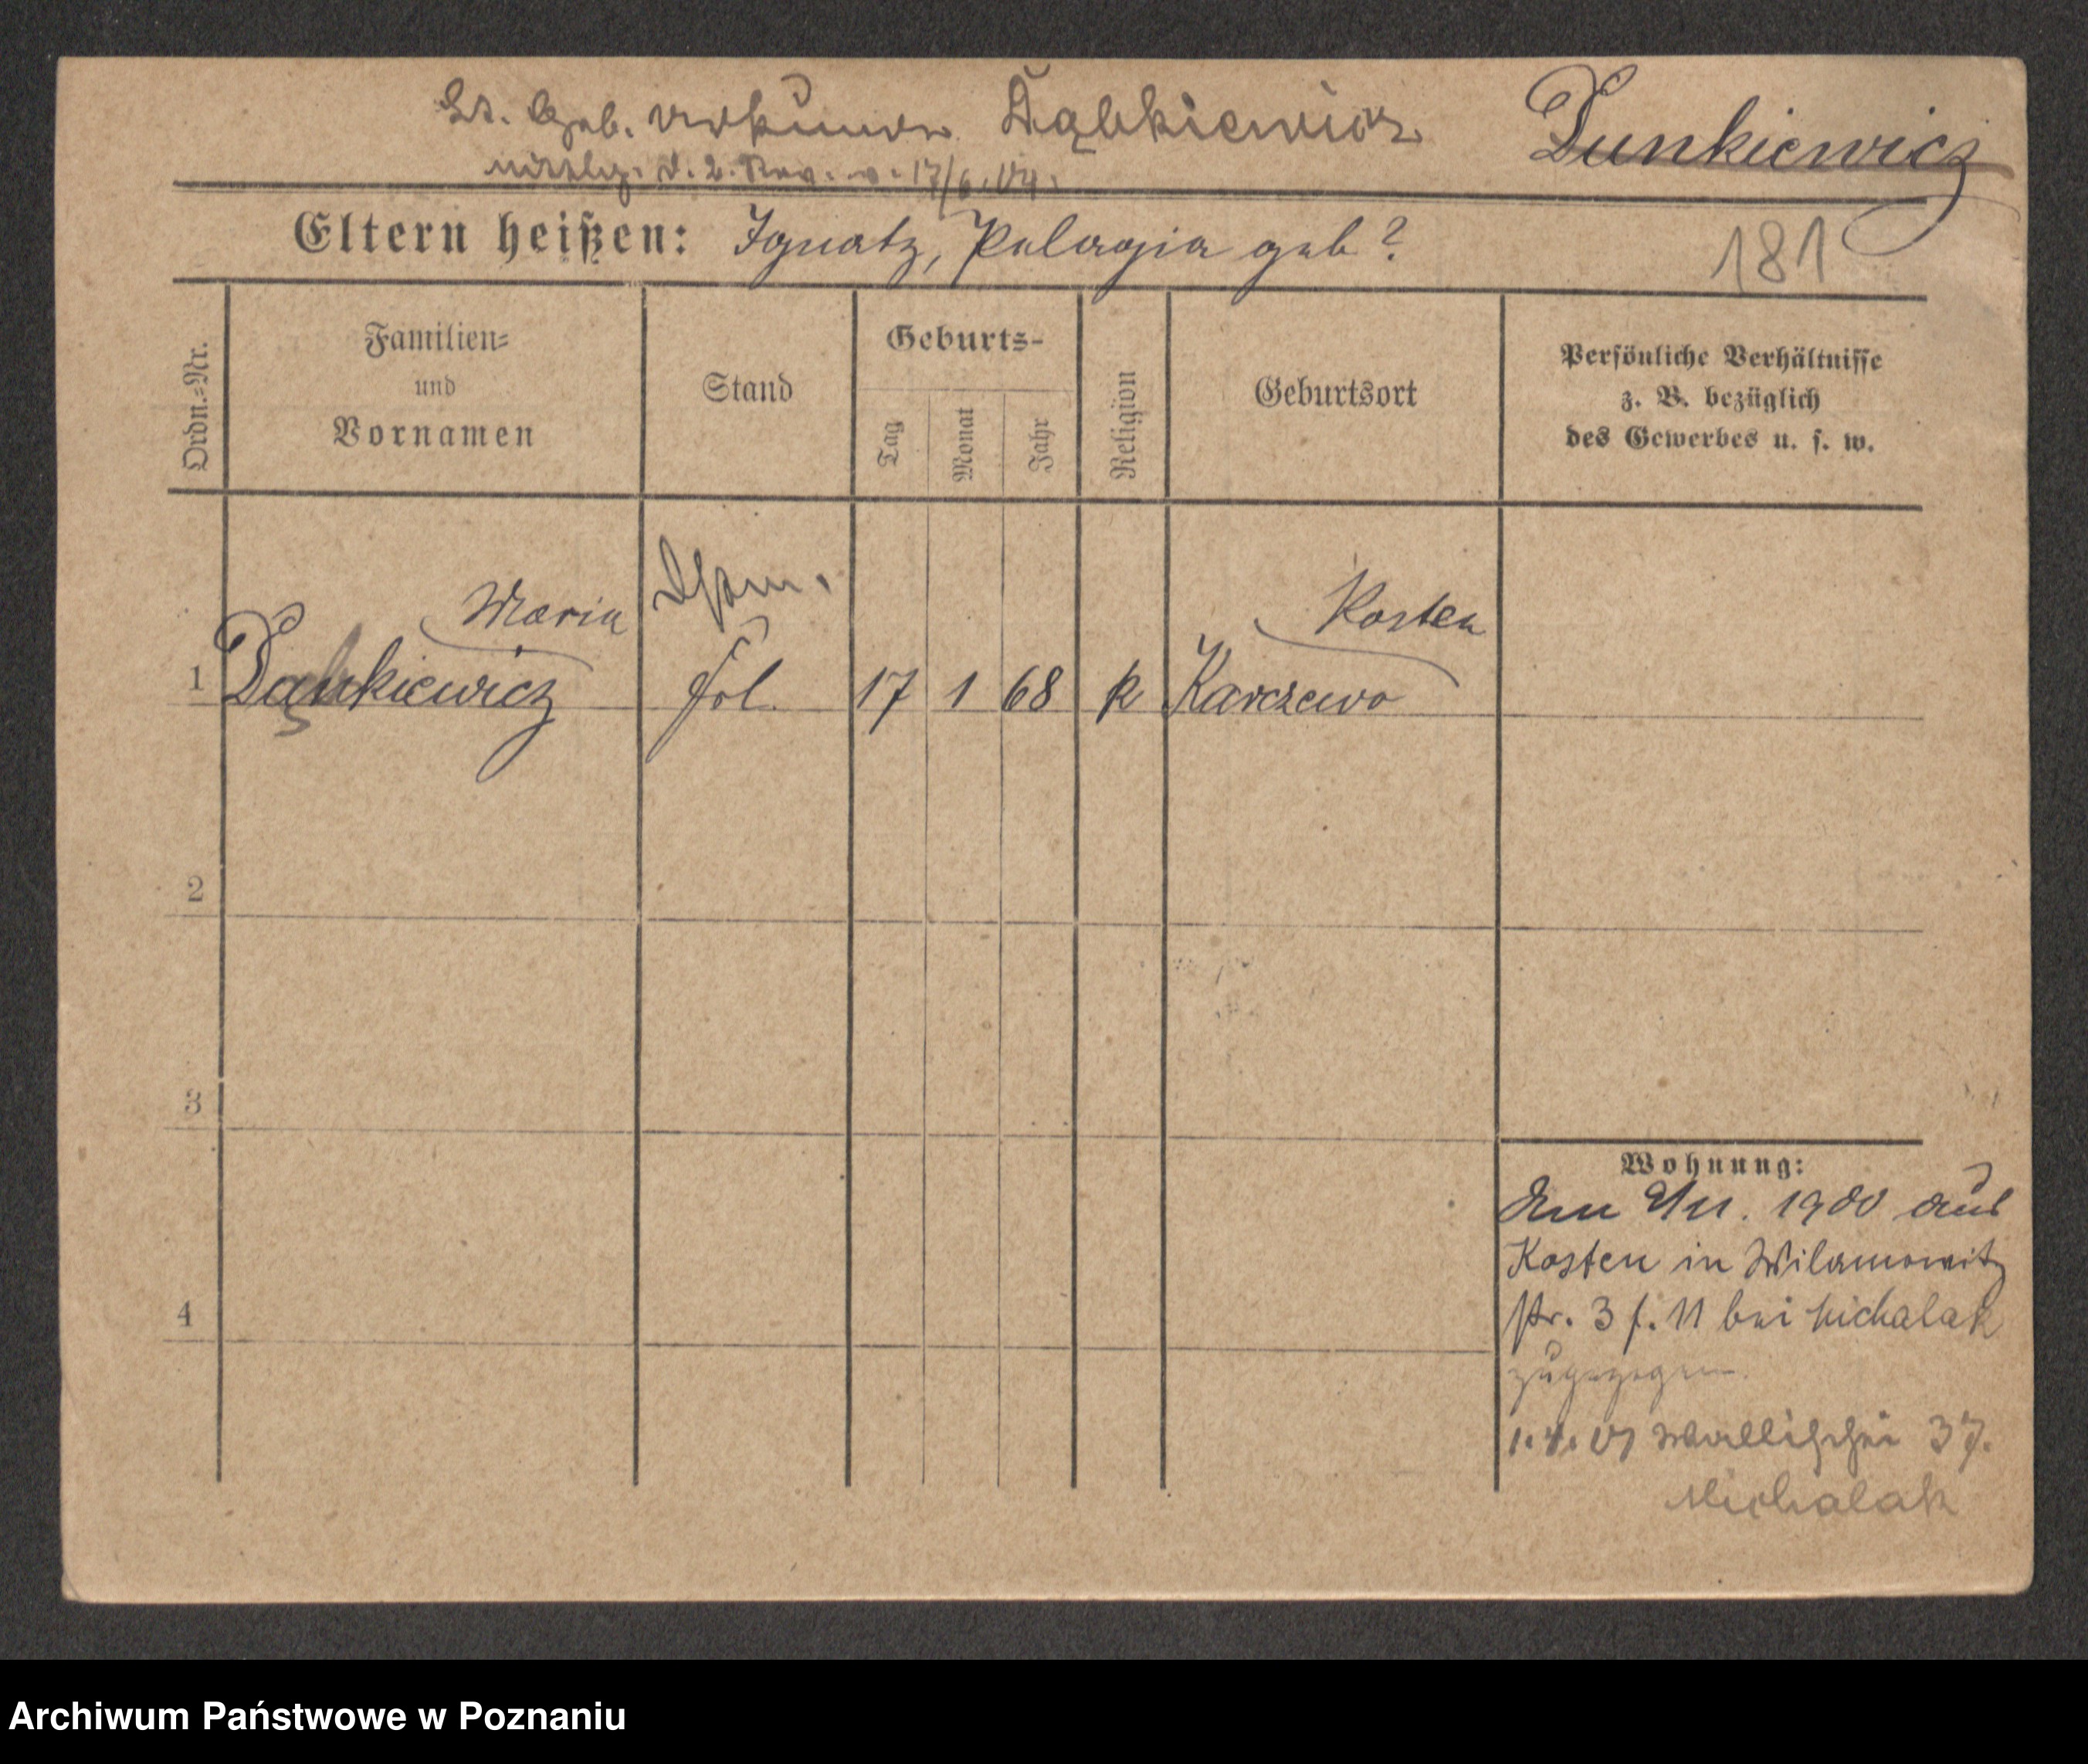 Lt. Geb. Urkunde Dąbkiewicz
Dunkiewicz
d. 2. Rev. v. 17/6.04.
Eltern heißen: Ignatz, Pelagia geb?
181
Ordn.=Nr.
Familien=
und
Vornamen
Stand
Geburts-
Tag
Monat
Jahr
Religion
Geburtsort
Persönliche Verhältnisse
z. B. bezüglich
des Gewerbes u. s. w.
Maria
Kosten
1 Dąbkiewicz 17 1 68 k Karczewo
2
3
4
Wohnung:
Am 1900 aus
Kosten in Wilamowitz
str. 3 f. 11 bei Michalak
zugezogen.
1.4.01 Wallischei 37.
Michalak
Archiwum Państwowe w Poznaniu